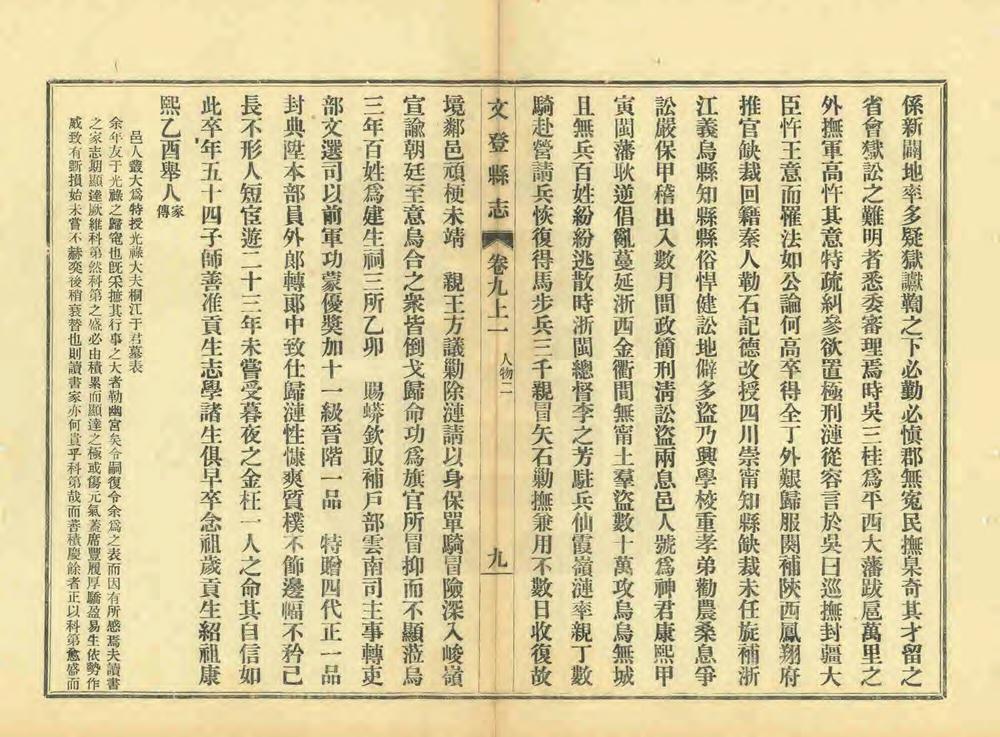 係新闢地率多疑獄讞鞫之下必勤必慎郡無寃民撫臬奇其才留之
省會獄訟之難明者悉委審理焉時吳三桂爲平西大藩跋扈萬里之
外撫軍高忤其意特疏糾參欲置極刑漣從容言於吳曰巡撫封疆大
臣忤王意而罹法如公論何高卒得全丁外艱歸服闋補陝西鳳翔府
推官缺裁回籍秦人勒石記德改授四川崇甯知縣缺裁未任旋補浙
江義烏縣知縣縣俗悍健訟地僻多盜乃興學校重孝弟勸農桑息爭
訟嚴保甲稽出入數月間政簡刑淸訟盜兩息邑人號爲神君康熙甲
寅閩藩耿逆倡亂蔓延浙西金衢間無甯土羣盜數十萬攻烏烏無城
且無兵百姓紛紛逃散時浙閩總督李之芳駐兵仙霞嶺漣率親丁數
騎赴營請兵恢復得馬步兵三千親冒矢石勦撫兼用不數日收復故
文登縣志 卷九上一 人物二 九
境鄰邑頑梗未靖 親王方議勦除漣請以身保單騎冒險深入峻嶺
宣諭朝廷至意烏合之衆皆倒戈歸命功爲旗官所冒抑而不顯蒞烏
三年百姓爲建生祠三所乙卯 賜蟒欽取補戶部雲南司主事轉吏
部文選司以前軍功蒙優奬加十一級晉階一品 特贈四代正一品
封典陞本部員外郎轉郎中致仕歸漣性慷爽質樸不飾邊幅不矜己
長不形人短宦遊二十三年未嘗受暮夜之金枉一人之命其自信如
此卒年五十四子師善准貢生志學諸生俱早卒念祖歲貢生紹祖康
熙乙酉舉人家傳
邑人叢大爲特授光祿大夫桐江于君墓表
余年友于光祿之歸窀也旣采摭其行事之大者勒幽宮矣令嗣復令余爲之表而因有所感焉夫讀書
之家志期顯達厥維科第然科第之盛必由積累而顯達之極或傷元氣蓋席豐履厚驕盈易生依勢作
威致有斲損始未嘗不赫奕後稍衰替也則讀書家亦何貴乎科第哉而善積慶餘者正以科第愈盛而